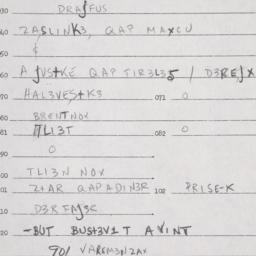 30 DRAſFUS
40 ZASLINK3, QAP MAXCU
50 &
60 A ſUSTKE QAP TIR3L35 / D3REſX
70 HAL3VES+K3 071 0
80 BRENTNOX
81 ΠLI3T 082 0
90 0
00 TLI3N NOX
01 Z+AR QAPADIN3R 102 PRISE-K
10 D3RFAſ3R
20 -BUT BUS+3V1T AVINT
901 VAREM3NZAX